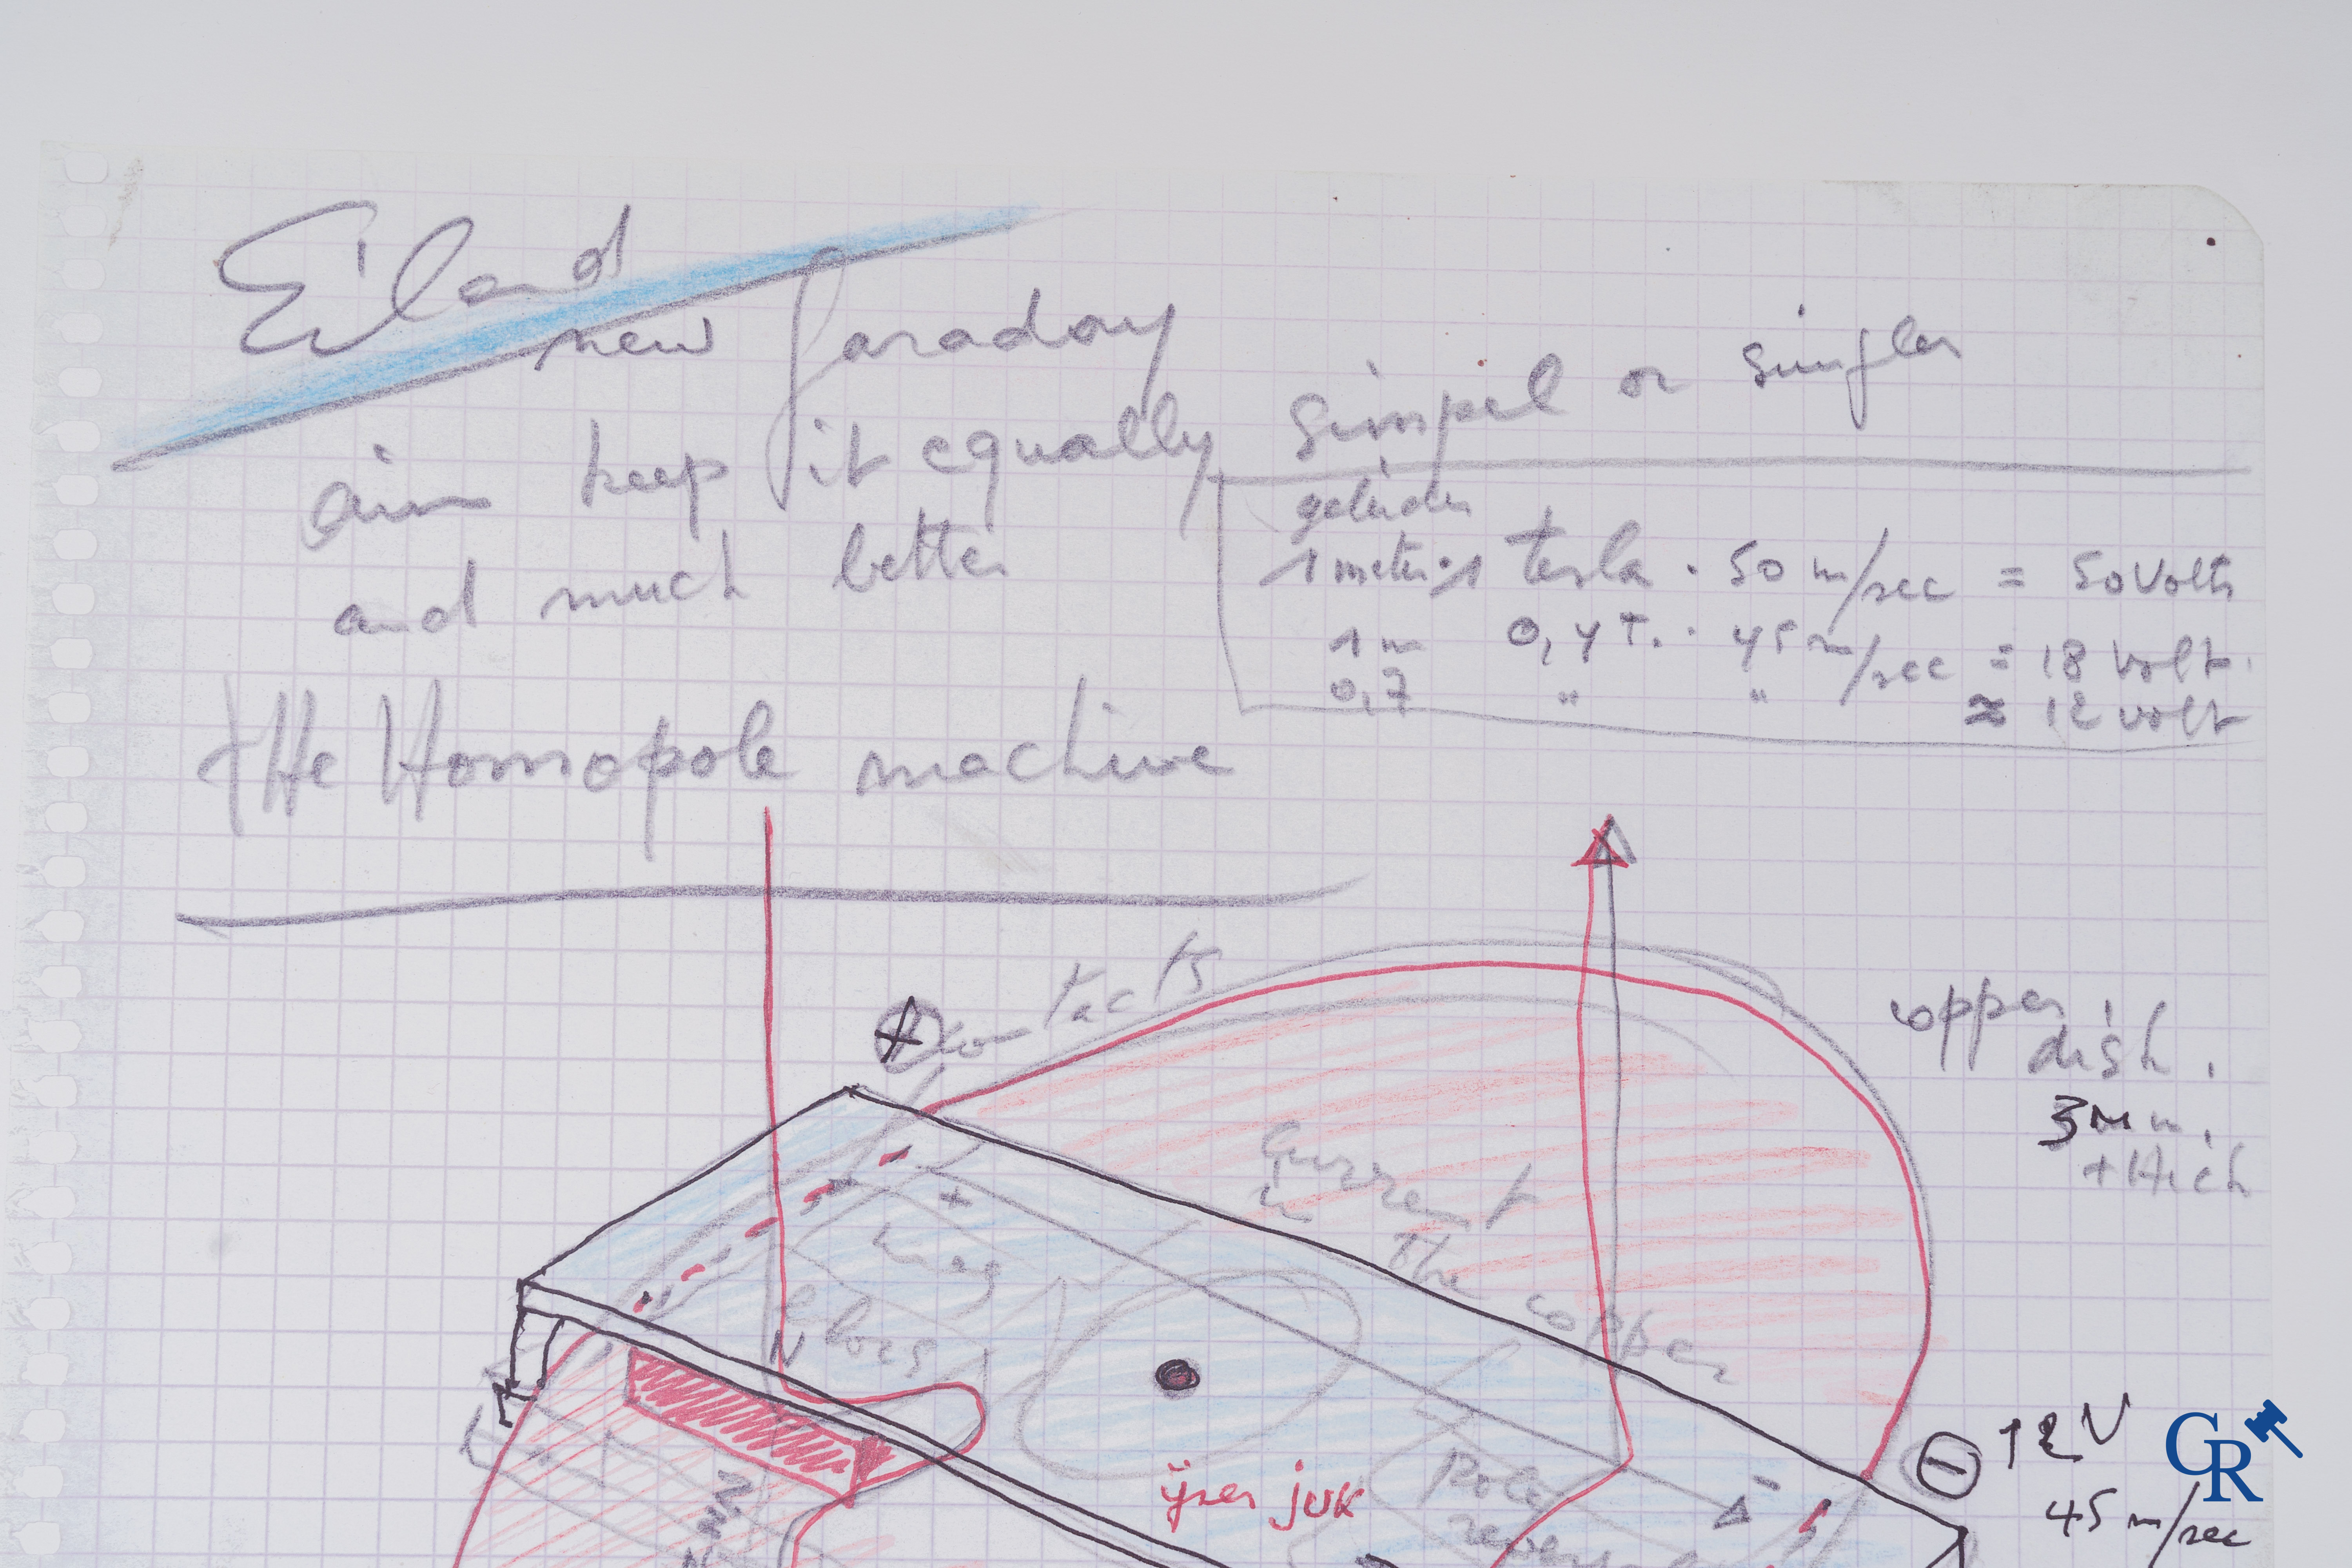 Eiland
new faraday
aim keep it equally simpel or simpler
and much better
geleider
1 meter · 1 tesla · 50 m/sec = 50 Volts
1 m 0,4 T. · 45 m/sec = 18 volt.
0,7 " " ≈ 12 volt
tHe Homopole machine
+ contacts
copper
dish.
3 mm.
+Hick
current
in
the
copper
+
mag
bloks
N
ijzer juk
Pole
-
- 12 V
45 m/sec
CR